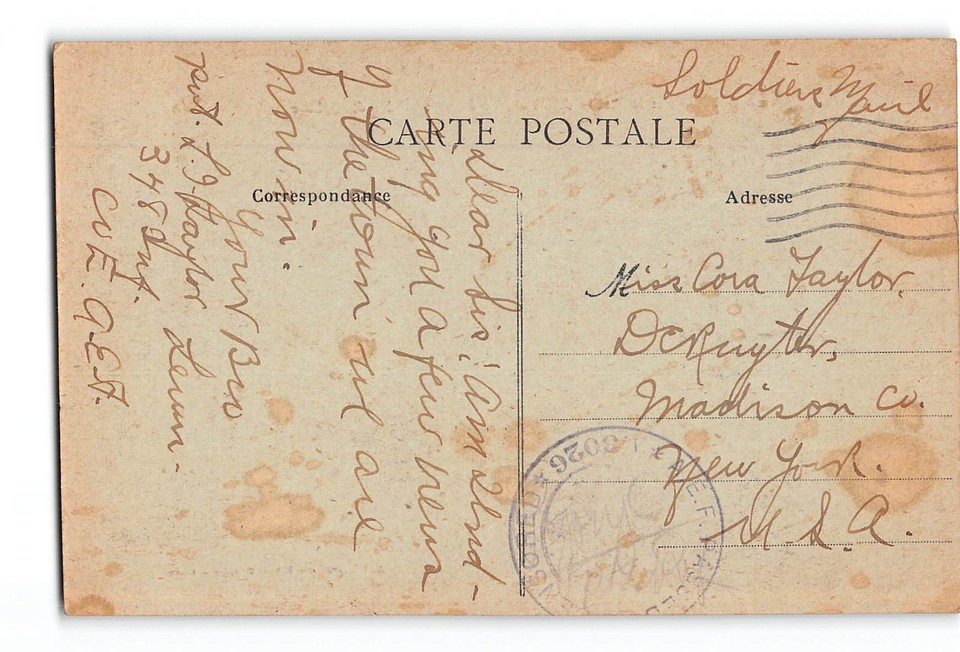 Soldiers Mail
CARTE POSTALE
Correspondance
Adresse
Dear Sis; Am send-
ing you a few views
of the town we are
now in.
Your Bro
Pvt. L J Taylor
348 Inf.
Co E. A.E.F.
Miss Cora Taylor,
DeRuyter,
Madison Co.
New York.
U.S.A.
A.E.F. PASSED
CENSORED
8026